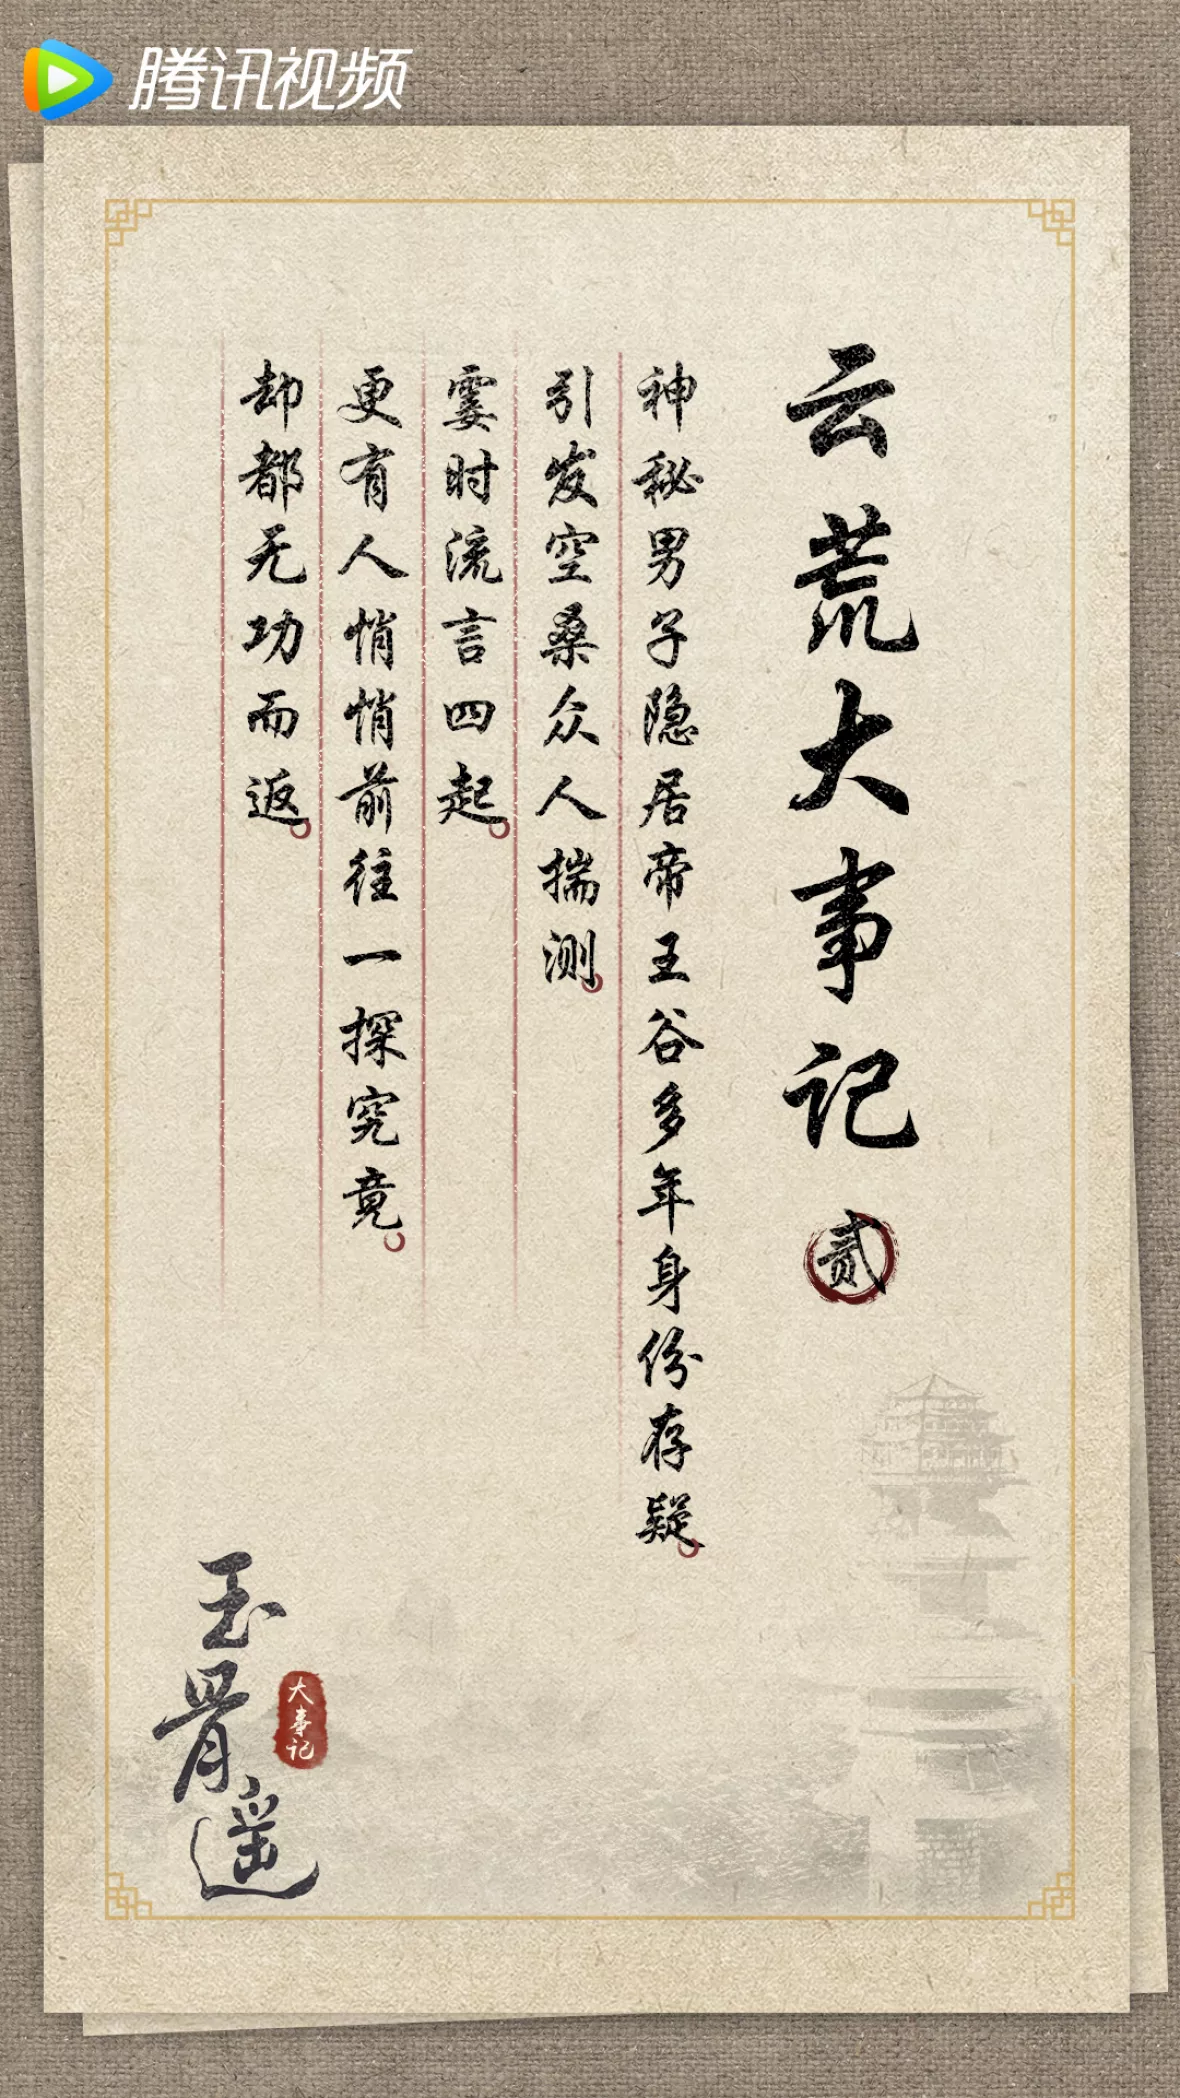 腾讯视频
云荒大事记
贰
神秘男子隐居帝王谷多年身份存疑。
引发空桑众人揣测。
霎时流言四起。
更有人悄悄前往一探究竟。
却都无功而返。
玉骨遥
大事记